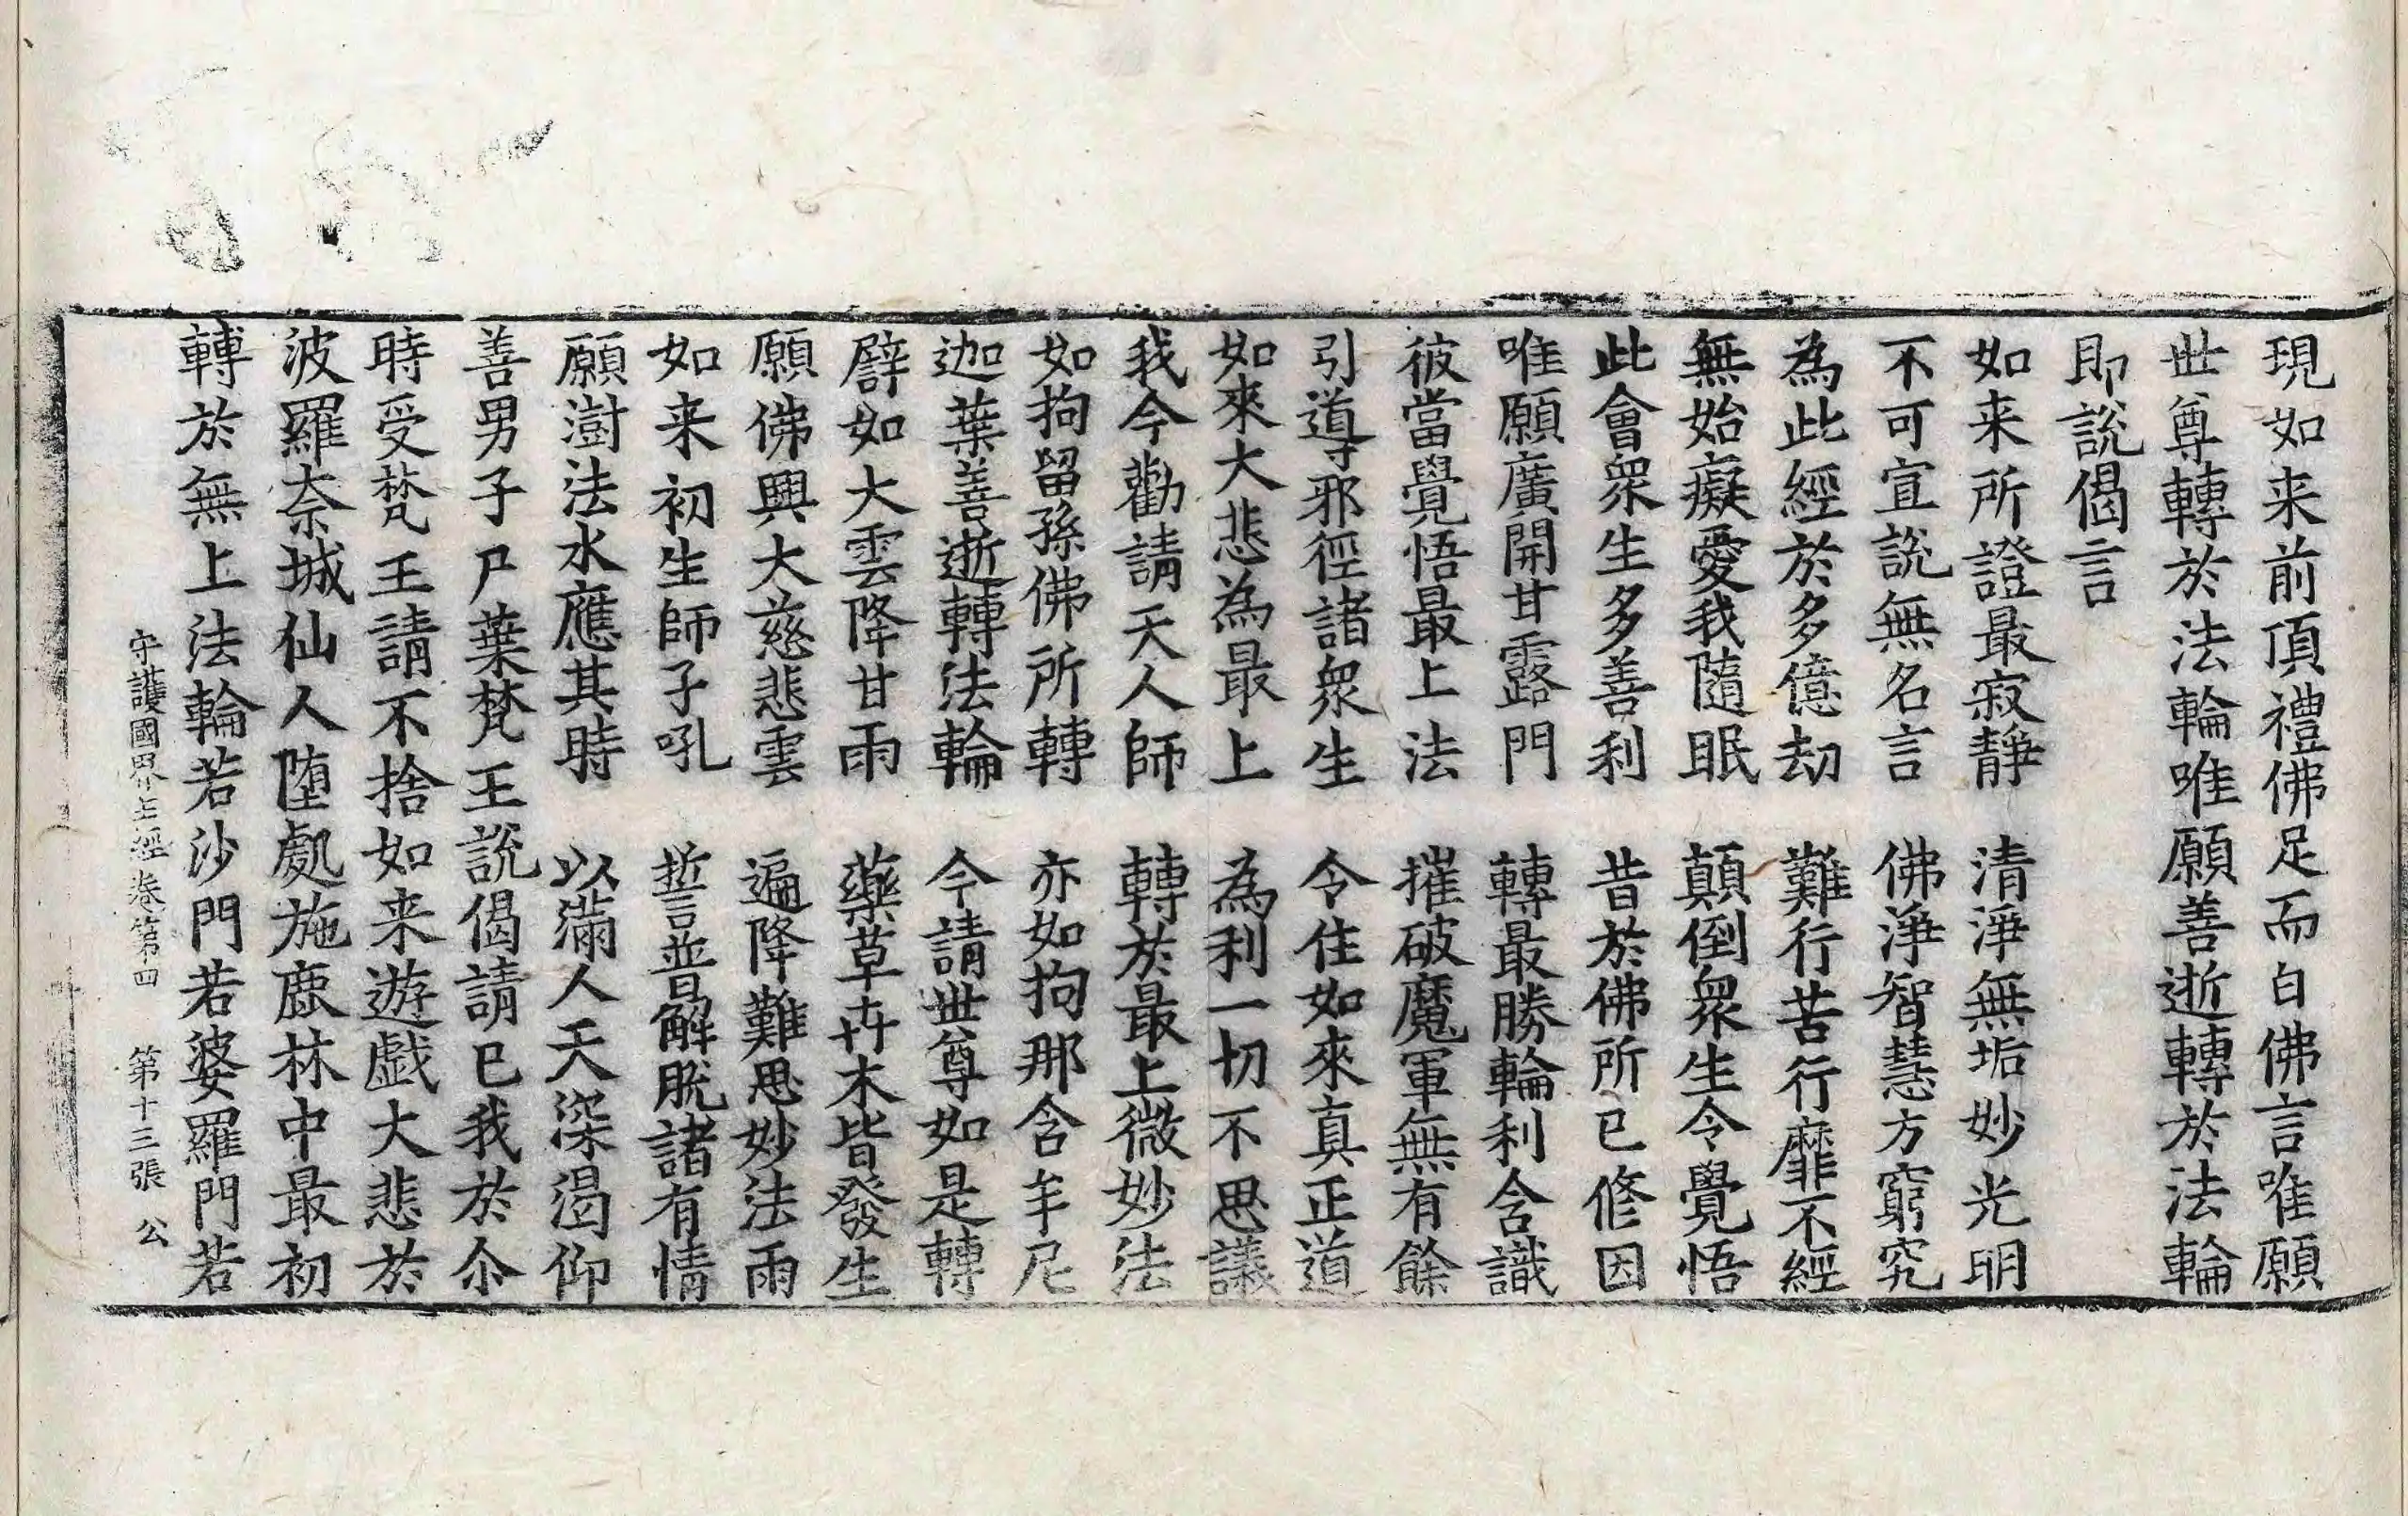 現如来前頂禮佛足而白佛言唯願
世尊轉於法輪唯願善逝轉於法輪
即說偈言
如来所證最寂静　清淨無垢妙光明
不可宣說無名言　佛淨智慧方窮究
為此經於多億劫　難行苦行靡不經
無始癡愛我隨眠　顛倒衆生令覺悟
此會衆生多善利　昔於佛所已修因
唯願廣開甘露門　轉最勝輪利含識
彼當覺悟最上法　摧破魔軍無有餘
引導邪徑諸衆生　令住如來真正道
如來大悲為最上　為利一切不思議
我今勸請天人師　轉於最上微妙法
如拘留孫佛所轉　亦如拘那含牟尼
迦葉善逝轉法輪　今請世尊如是轉
譬如大雲降甘雨　藥草卉木皆發生
願佛興大慈悲雲　遍降難思妙法雨
如来初生師子吼　誓普解脫諸有情
願澍法水應其時　以滿人天深渴仰
善男子尸葉梵王說偈請已我於尒
時受梵王請不捨如来遊戲大悲於
波羅奈城仙人墮處施鹿林中最初
轉於無上法輪若沙門若婆羅門若
守護國界主經卷第四　第十三張　公